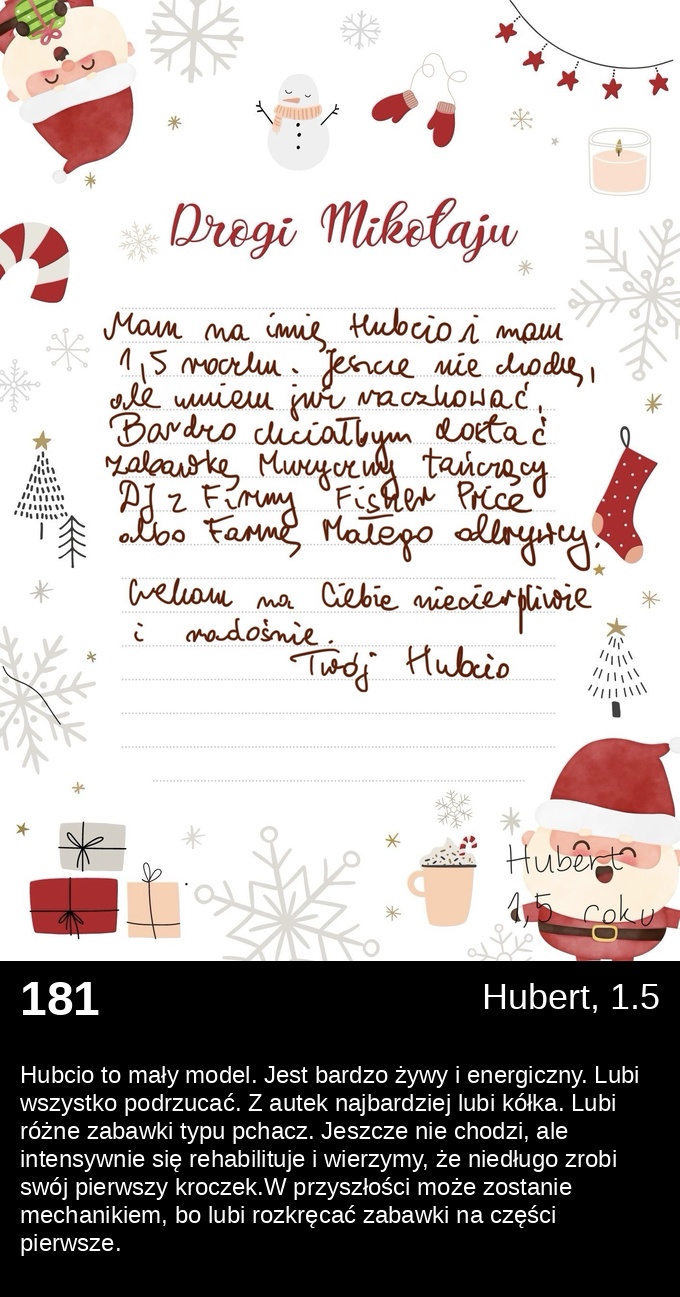 Drogi Mikołaju
Mam na imię Hubcio i mam
1,5 roczku. Jeszcze nie chodzę,
ale umiem już raczkować.
Bardzo chciałbym dostać
zabawkę Muzyczny tańczący
DJ z Firmy Fisher Price
albo Farmę Małego odkrywcy.
Czekam na Ciebie niecierpliwie
i radośnie.
Twój Hubcio
Hubert
1,5 roku
181
Hubert, 1.5
Hubcio to mały model. Jest bardzo żywy i energiczny. Lubi
wszystko podrzucać. Z autek najbardziej lubi kółka. Lubi
różne zabawki typu pchacz. Jeszcze nie chodzi, ale
intensywnie się rehabilituje i wierzymy, że niedługo zrobi
swój pierwszy kroczek.W przyszłości może zostanie
mechanikiem, bo lubi rozkręcać zabawki na części
pierwsze.